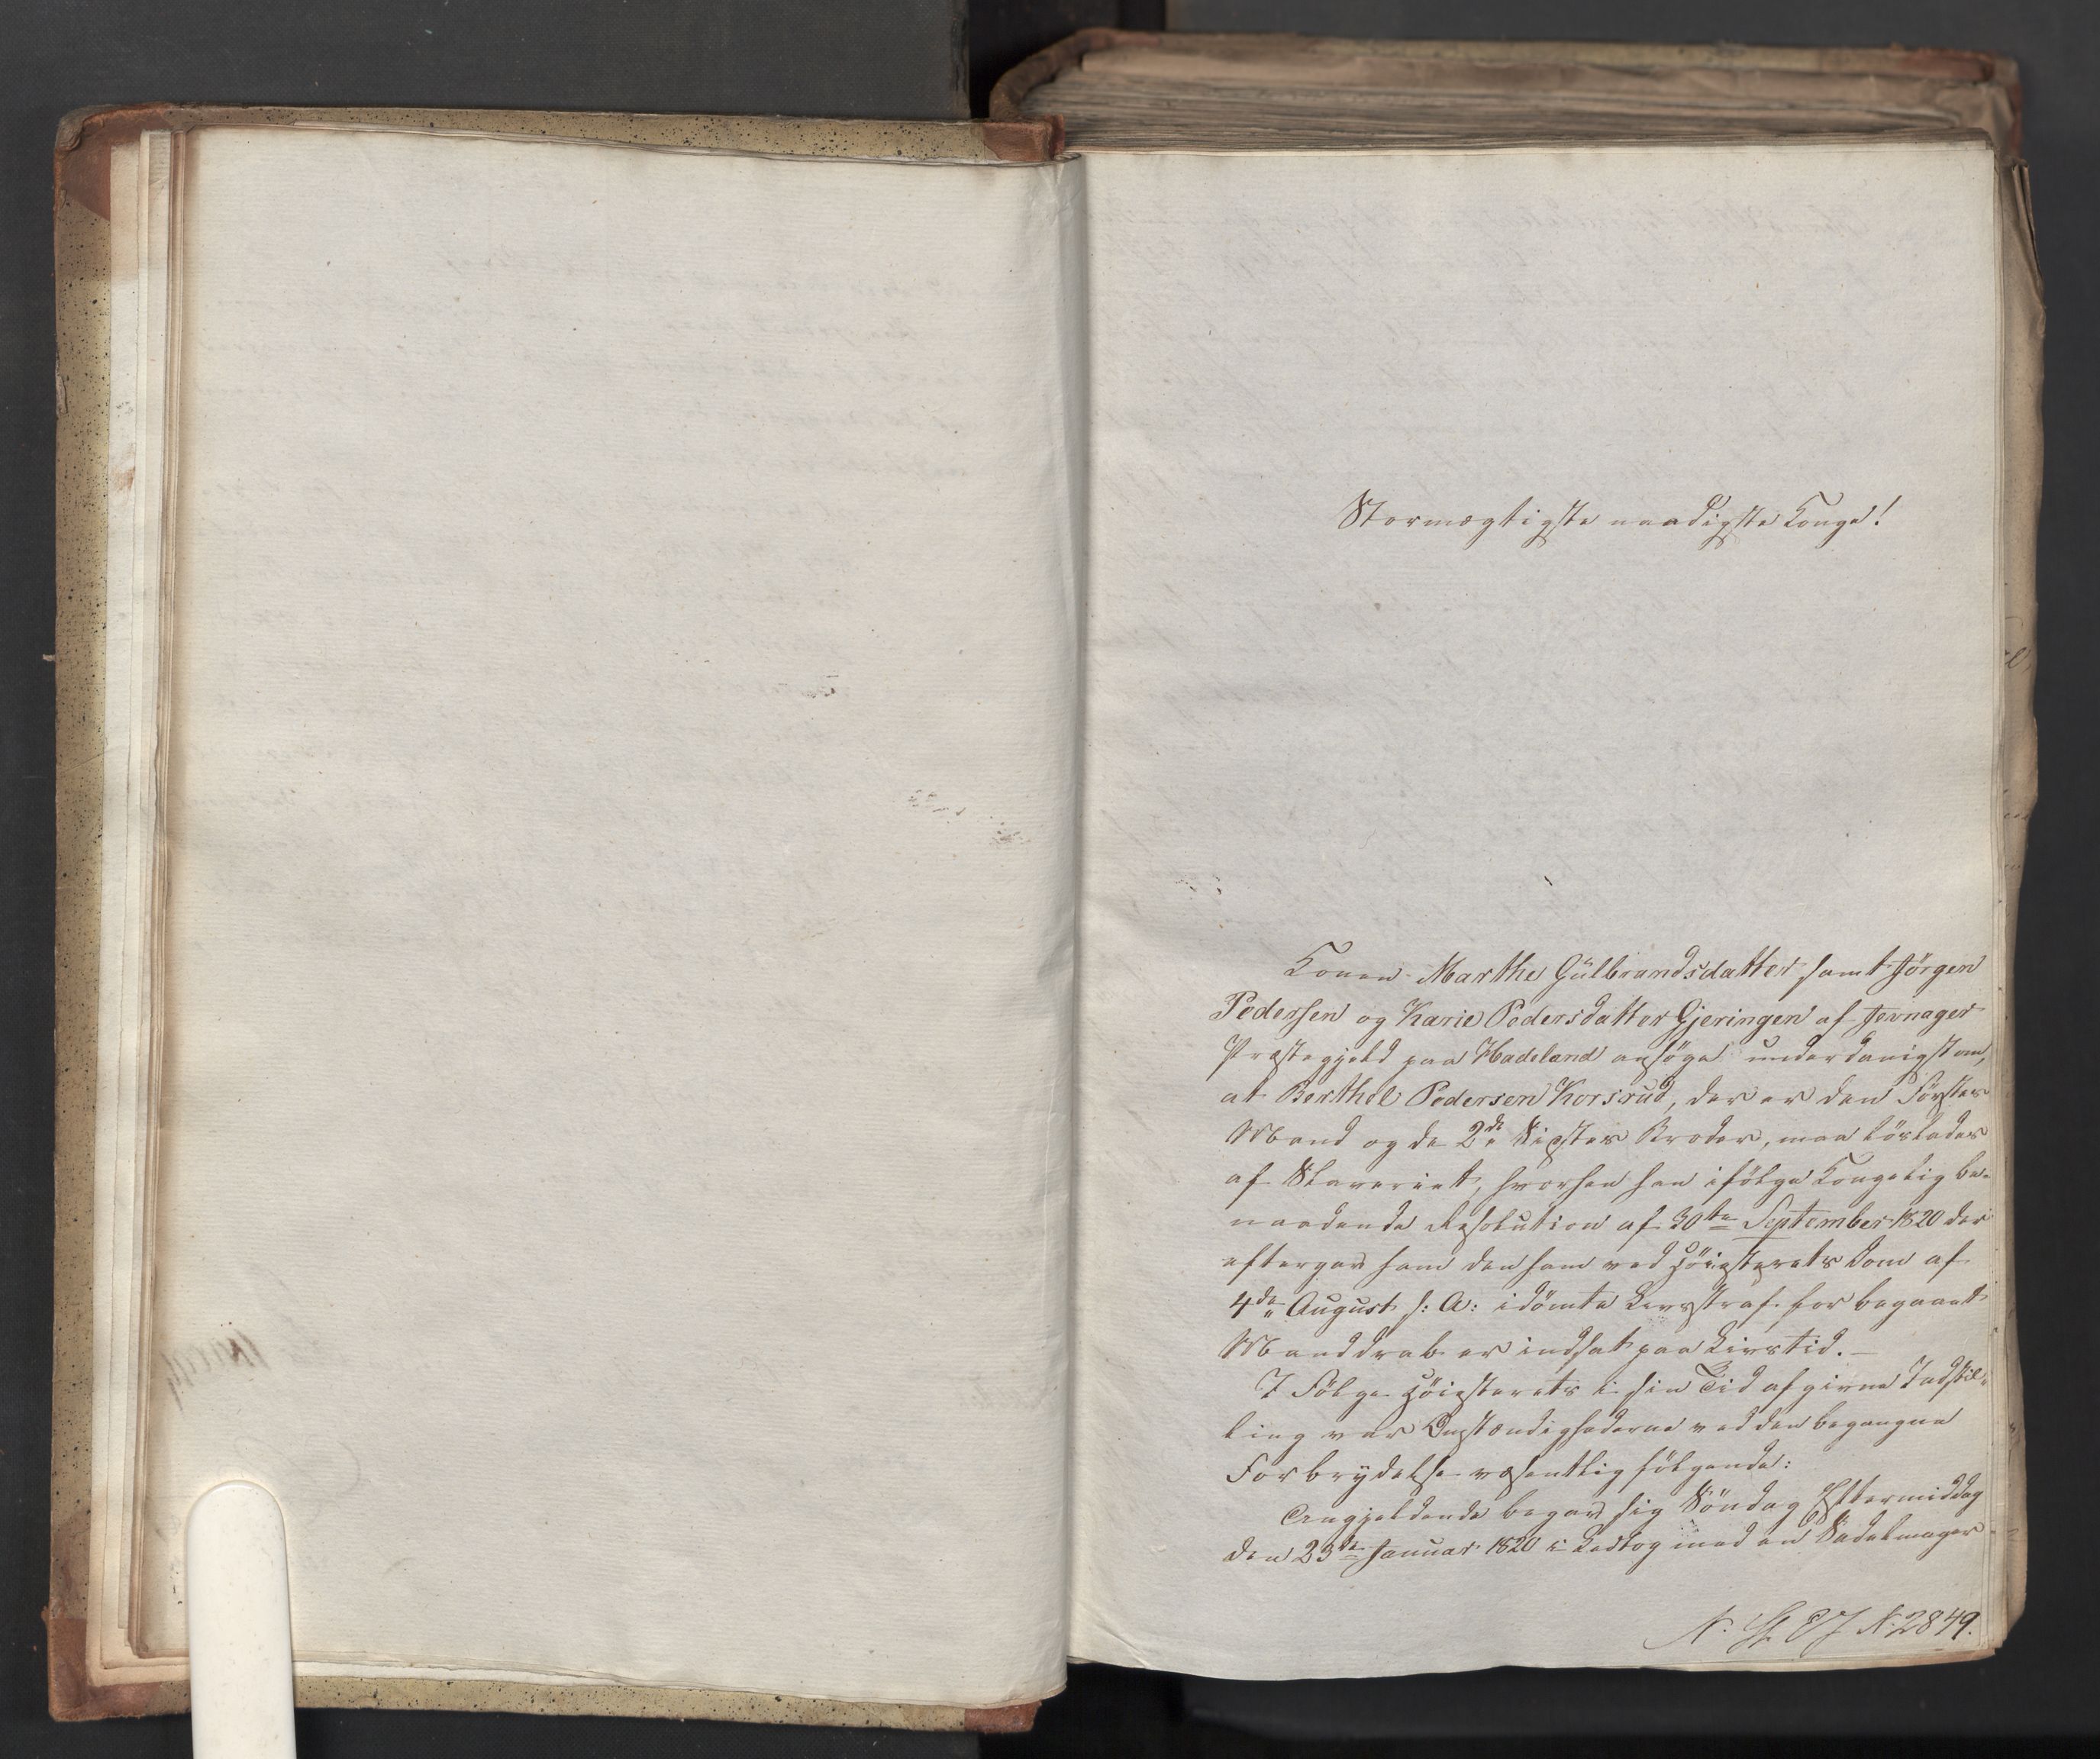 Stormægtigste naadigste Konge!
Konen Marthe Gülbrandsdatter samt Jörgen
Pedersen og Karie Pedersdatter Gjeringen af Jevnager
Præstegjeld paa Hadeland ansöge underdanigst om,
at Berthel Pedersen Korsrud, der er denFörstes
Mand og de 2de Sidstes Broder, maa löslades
af Slaveriet, hvorhen han ifölge Kongelig be-
naadende Resolution af 30te September 1820 der
eftergav ham den ham ved Höiesterets Dom af
4de August s: A: idömte Livsstraf for begaaet
Manddrab er indsat paa Livstid. —
I Fölge Höiesterets i sin Tid afgivne Indstil-
ling var Omstændighederne ved den begangne
Forbrydelse væsentlig fölgende:
Angjeldende begav sig Söndag Eftermiddag
den 23de Januar 1820 i Ledtog med en Sadelmager
N. St E J No 2849.